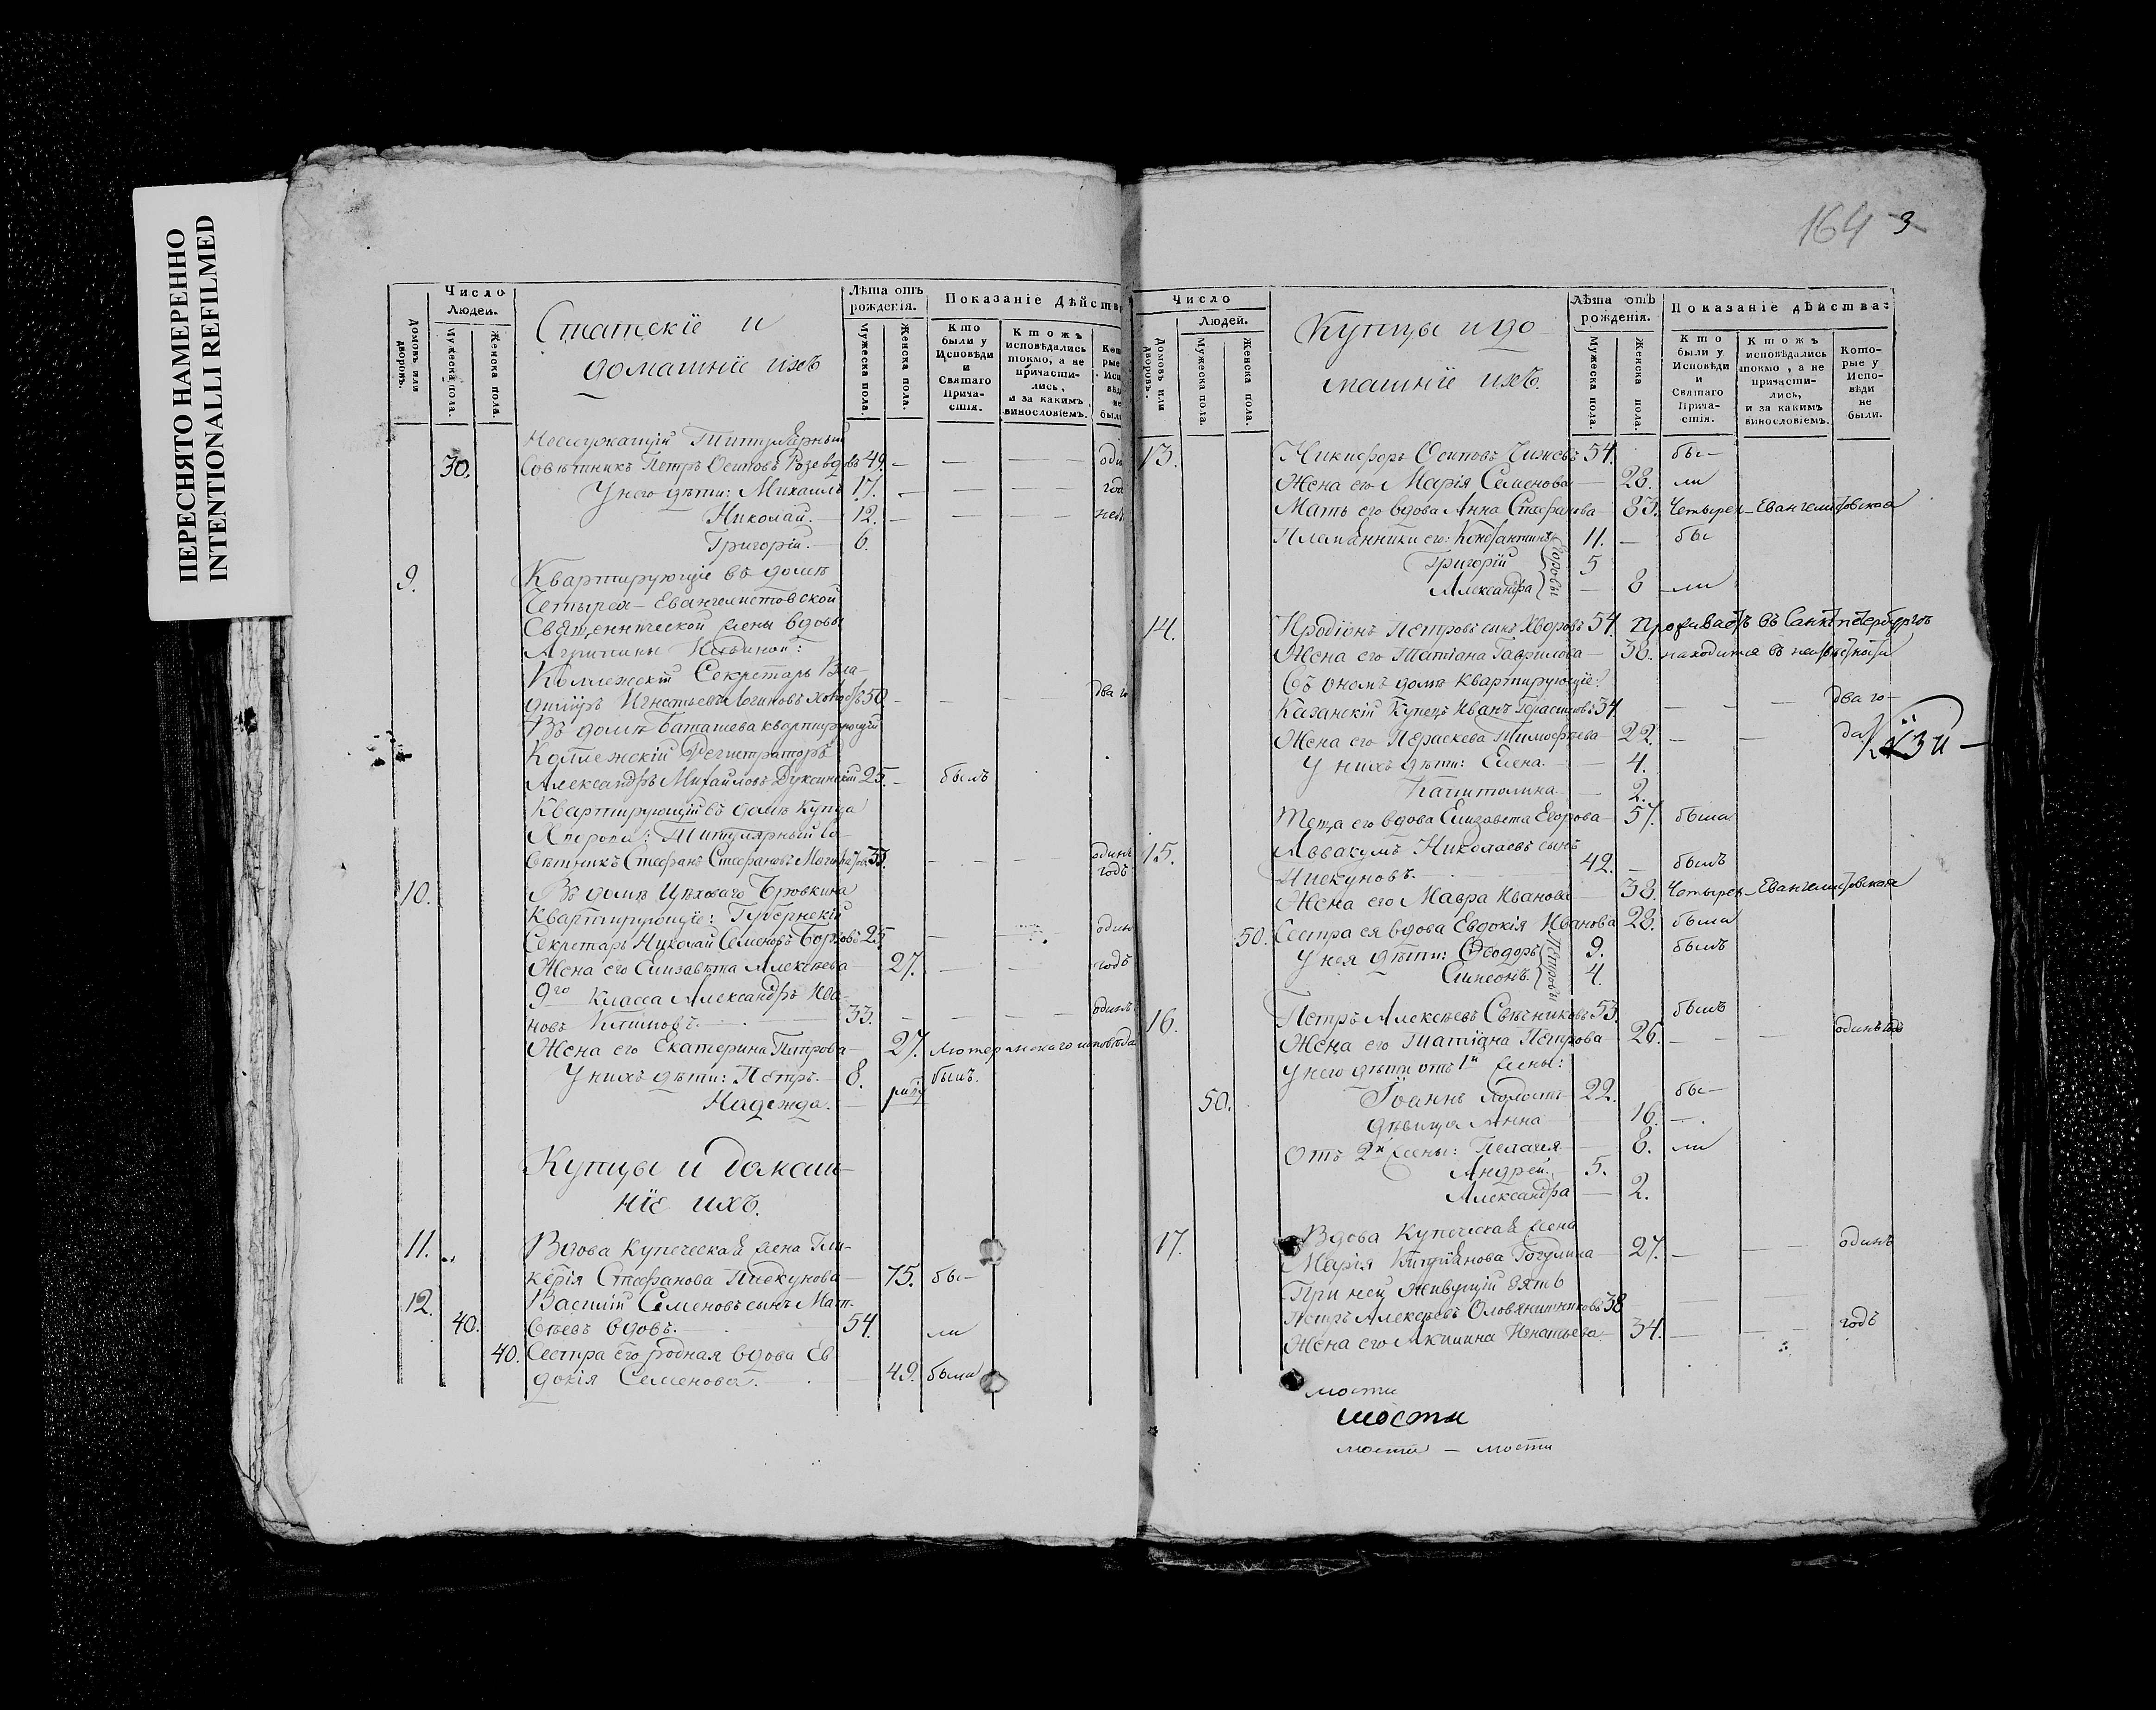 ПЕРЕСНЯТО НАМЕРЕННО
INTENTIONALLI REFILMED
Число
Людей.
Домовъ или дворовъ.
Мужеска пола.
Женска пола.
Статскіе и
домашніе ихъ
Лѣта отъ
рожденія.
Мужеска пола.
Женска пола.
Показаніе Дѣйств
Кто
были у
Исповѣди
и
Святаго
Прича-
стія.
Ктожъ
исповѣдались
токмо, а не
причасти-
лись,
и за какимъ
винословіемъ.
Неслужащій Титулярный
30. Совѣтникъ Петръ Осиповъ 49.
У него дѣти: Михаилъ 17.
Николай. 12.
Григорій. 6.
9. Квартирующіе въ домѣ
Четырех-Евангелистовской
Священнической жены вдовы
Агрипины Ильиной:
Коллежскій Секретарь Вла-
диміръ Игнатьевъ 50.
Въ домѣ Баташева квартирующій
Коллежскій Регистраторъ
Александръ Михайловъ 25. былъ
Квартирующій въ домѣ купца
Титулярный Со-
вѣтникъ Стефанъ Стефановъ 33. одинъ
годъ
10. Въ домѣ Цѣховаго Бровкина
Квартирующіе: Губернскій
Секретарь Николай Семеновъ 25 один
Жена его Елизавета Алексѣева 27. годъ
9го Класса Александръ Ива-
новъ 33. одинъ
Жена его Екатерина Петрова 27. Лютеранскаго исповѣда
У нихъ дѣти: Петръ. 8. былъ.
Надежда.
Купцы и домаш-
ніе ихъ.
11. Вдова Купеческая жена Гли-
керія Стефанова Пискунова 75. бы-
12. Василій Семеновъ сынъ Мат-
40. вѣевъ вдовъ. 54. ли
40. Сестра его родная вдова Ев-
докія Семенова. 49. была
164 3
Число
Людей.
Домовъ или дворовъ.
Мужеска пола.
Женска пола.
Купцы и до-
машніе ихъ.
Лѣта отъ
рожденія.
Мужеска пола.
Женска пола.
Показаніе дѣйства:
Кто
были у
Исповѣди
и
Святаго
Прича-
стія.
Ктожъ
исповѣдались
токмо, а не
причасти-
лись,
и за какимъ
винословіемъ.
Кото-
рые у
Испо-
вѣди
не
были.
13. Никифоръ Осиповъ Чижовъ 54. бы-
Жена его Марія Семенова 28. ли
Мать его вдова Анна Стефанова 83. Четырех-Евангелистовская
Племянники его: Константинъ 11. бы
Григорій 5
Александра 8 ли
14. Иродіонъ Петровъ сынъ 54. Проживаетъ въ Санктпетербургѣ
Жена его Татіана Гаврилова 38. находится въ неизвѣстности
Въ ономъ домѣ квартирующіе:
Казанскій Купецъ Иванъ Герасимовъ 34. два го-
Жена его Параскева Тимофѣева 22. да
У нихъ дѣти: Елена. 4.
Капитолина 2.
Теща его вдова Елизавета Егорова 57. была
15. Аввакумъ Николаевъ сынъ
Пискуновъ. 42. былъ
Жена его Мавра Иванова 38. Четырех-Евангелистовская
50. Сестра ея вдова Евдокія Иванова 28. была
У нея дѣти: Ѳеодоръ 9. былъ
Симеонъ. 4.
Петровы
16. Петръ Алексѣевъ Свѣчниковъ 53. былъ
Жена его Татіана Петрова 26. одинъ годъ
У него дѣти отъ 1й жены:
50. Іоаннъ холостъ 22. бы-
дѣвица Анна 16.
Отъ 2й жены: Пелагея 8. ли
Андрей. 5.
Александра 2.
17. Вдова Купеческая жена
Марія 27. одинъ
При ней живущій зять
Петръ Алексѣевъ Оловянишниковъ 38
Жена его Акилина Игнатьева 34. годъ
мости
мости
мости - мости